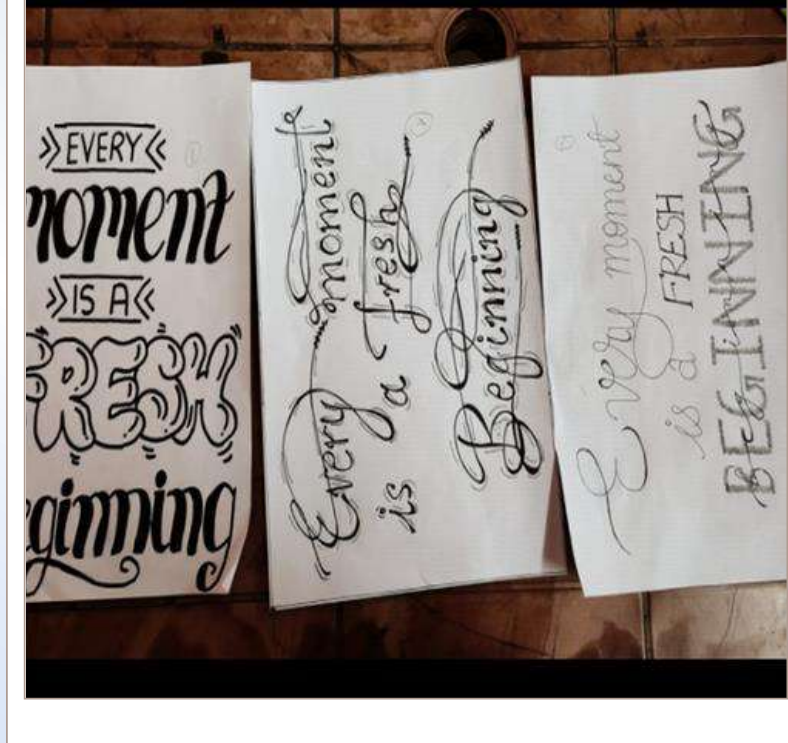 EVERY
moment
IS A
FRESH
ginning
Every moment
is a fresh
Beginning
Every moment
is a FRESH
BEGINNING